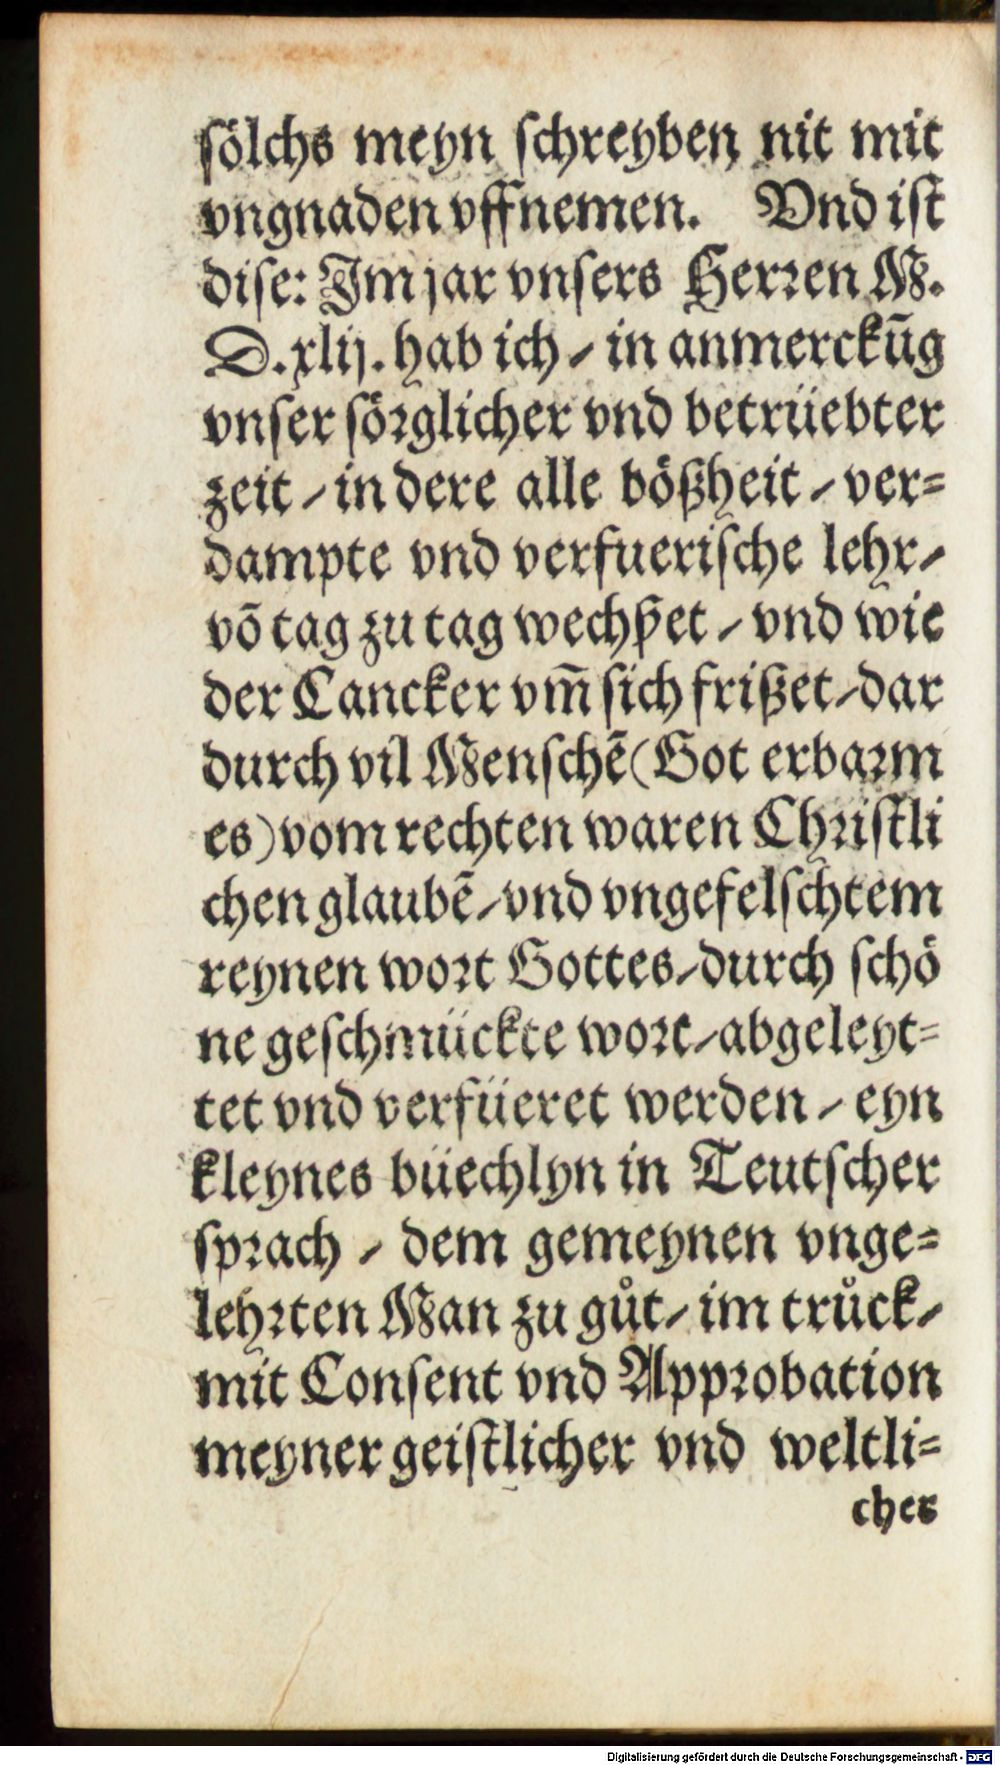 sölchs meyn schreyben nit mit
vngnaden vffnemen. Vnd ist
dise: Im jar vnsers Herren M.
D.xlij. hab ich / in anmerckūg
vnser sörglicher vnd betrüebter
zeit / in dere alle bößheit / ver=
dampte vnd verfuerische lehr /
vō tag zu tag wechßet / vnd wie
der Cancker vm̄ sich frißet / dar
durch vil Menschē (Got erbarm
es) vom rechten waren Christli
chen glaubē / vnd vngefelschtem
reynen wort Gottes / durch schö
ne geschmückte wort / abgeleyt=
tet vnd verfüeret werden / eyn
kleynes büechlyn in Teutscher
sprach / dem gemeynen vnge=
lehrten Man zu gůt / im trůck /
mit Consent vnd Approbation
meyner geistlicher vnd weltli=
cher
Digitalisierung gefördert durch die Deutsche Forschungsgemeinschaft - DFG